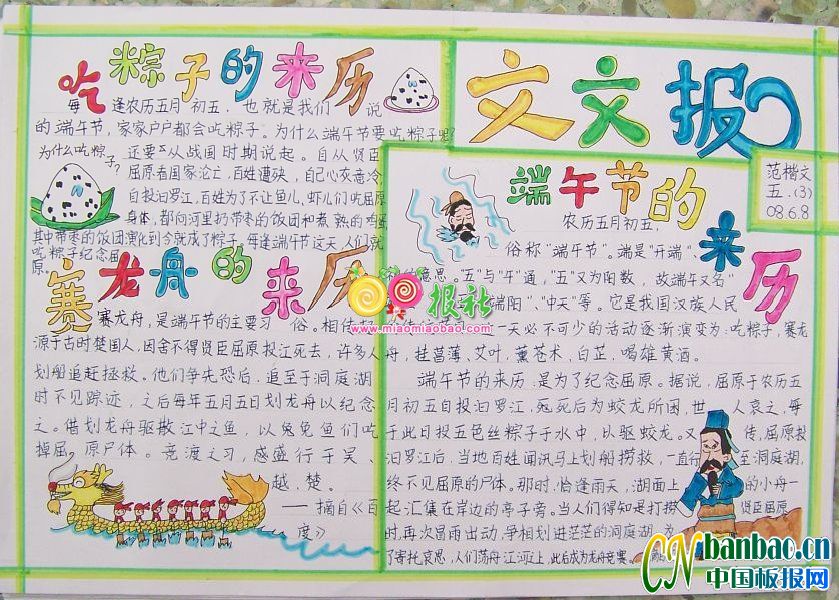 吃粽子的来历
每逢农历五月初五,也就是我们说
的端午节,家家户户都会吃粽子。为什么端午节要吃粽子呢?
为什么吃粽子?
还要从战国时期说起。自从贤臣
屈原看国家沦亡,百姓遭殃,自己心灰意冷,
自投汨罗江,百姓为了不让鱼儿、虾儿们吃屈原
身体,都向河里扔带枣的饭团和煮熟的鸡蛋
其中带枣的饭团演化到今就成了粽子,每逢端午节这天,人们就
吃粽子纪念屈
原。
赛龙舟的来历
赛龙舟,是端午节的主要习俗。相传起
源于古时楚国人,因舍不得贤臣屈原投江死去,许多人
划船追赶拯救。他们争先恐后,追至于洞庭湖
时不见踪迹,之后每年五月五日划龙舟以纪念
之。借划龙舟驱散江中之鱼,以免鱼们吃
掉屈原尸体。竞渡之习,感盛行于吴、
越、楚。
——摘自《百
度》
文文报
范楷文
五.(3)
08.6.8
端午节的来历
农历五月初五,
俗称“端午节”。端是“开端”、
的意思。“五”与“午”通,“五”又为阳数,故端午又名
端阳”、“中天”等。它是我国汉族人民
一天必不可少的活动逐渐演变为:吃粽子,赛龙
舟,挂菖蒲、艾叶,薰苍术,白芷,喝雄黄酒。
端午节的来历,是为了纪念屈原。据说,屈原于农历五
月初五自投汨罗江,死死后为蛟龙所困,世人哀之,每
于此日投五色丝粽子于水中,以驱蛟龙。又传,屈原投
汨罗江后,当地百姓闻讯马上划船捞救,一直行至洞庭湖,
终不见屈原的尸体。那时,恰逢雨天,湖面上的小舟一
起汇集在岸边的亭子旁。当人们得知是打捞贤臣屈原
时,再次冒雨出动,争相划进茫茫的洞庭湖。为
了寄托哀思,人们荡舟江河上,此后成为龙舟竞赛。
报社
www.miaomiaobao.com
CNbanbao.cn
中国板报网